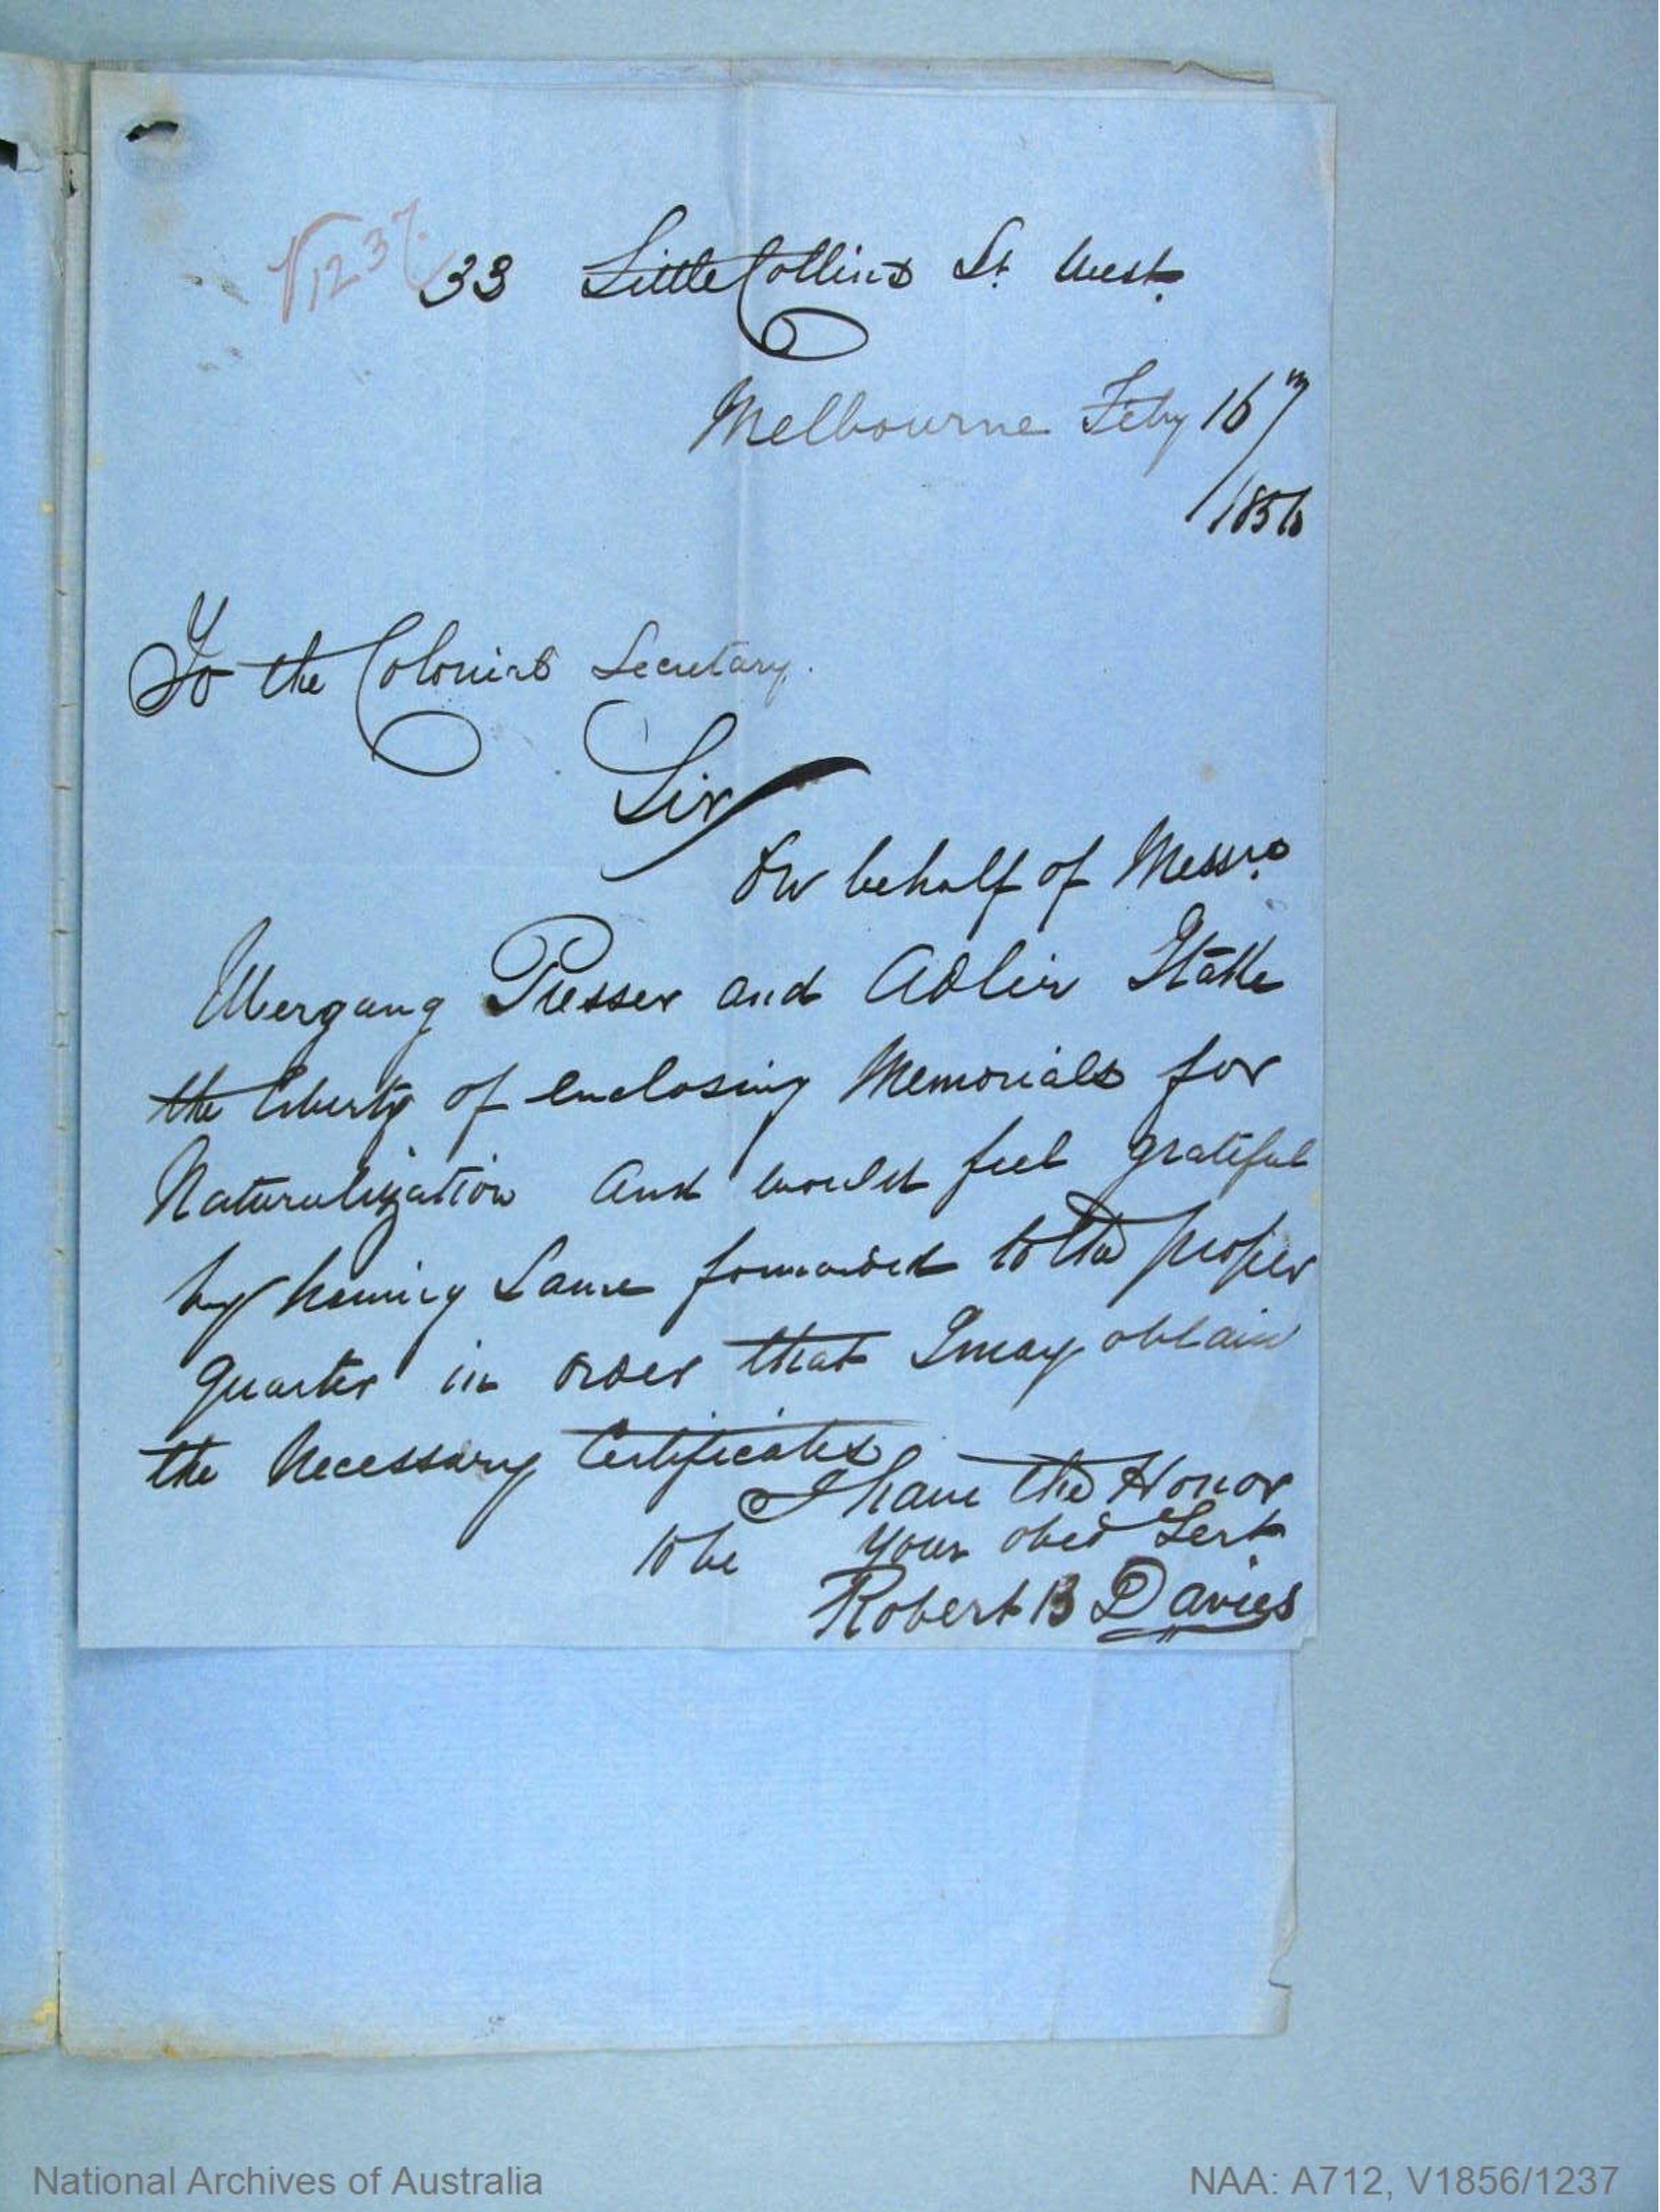 V1237
33 Little Collins St. West.
Melbourne Feby 16th
/1856
To the Colonial Secretary.
Sir
On behalf of Messrs.
Ubergang Presser and Adler I take
the liberty of enclosing Memorials for
Naturalization and would feel grateful
by having Same forwarded to the proper
quarter in order that I may obtain
the Necessary Certificates
I have the Honor
to be your obed Sert
Robert B Davies
National Archives of Australia
NAA: A712, V1856/1237